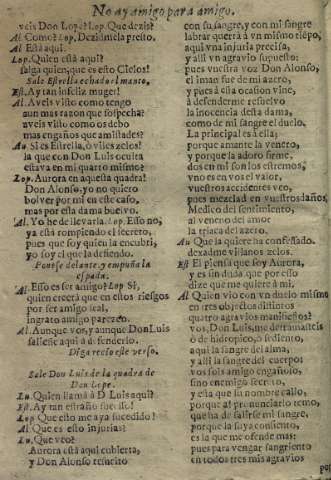 No ay amigo para amigo.
veis Don Lope? Lop. Que dezis?
Al. Como? Lop. Dezidmela presto.
Al. Està aqui.
Lop. Quien està aqui?
salga quien, que es esto Cielos!
Sale Estrella echado el manto.
Est. Ay tan infeliz muger!
Al. Aveis visto como tengo
aun mas razon que sospecha?
aveis visto como os debo
mas engaños que amistades?
Au. Si es Estrella, ò viles zelos!
la que con Don Luis oculta
estava en mi quarto mismo?
Lop. Aurora en aquella quadra!
Don Alonso, yo no quiero
bolver por mi en este caso,
mas por esta dama buelvo.
Al. Yo he de llevarla. Lop. Esso no,
ya està rompiendo el secreto,
pues que soy quien la encubri,
yo soy el que la defiendo.
Ponese delante, y empuña la
espada.
Al. Esso es ser amigo? Lop. Si,
quien creerà que en estos riesgos
por ser amigo leal,
ingrato amigo parezco.
Al. Aunque vos, y aunque Don Luis
saliesse aqui à defenderlo.
Diga recio este verso.
Sale Don Luis de la quadra de
Don Lope.
Lu. Quien llama à D. Luis aqui?
Est. Ay tan estraño sucesso!
Lop. Que esto me aya sucedido!
Al. Que es esto injurias?
Lu. Que veo?
Aurora està aqui cubierta,
y Don Alonso resuelto
con su sangre, y con mi sangre
labrar querrà à un mismo tiempo,
aqui una injuria precisa,
y alli un agravio supuesto:
pues vuestra voz Don Alonso,
el iman fue de mi azero,
y pues à esta ocasion vine,
à defenderme resuelvo
la inocencia desta dama,
como de mi sangre el duelo.
La principal es à ella;
porque amante la venero,
y porque la adoro firme,
dos en mi son los estremos,
uno es en vos el valor,
vuestros accidentes veo,
pues mezclad en vuestros daños,
Medico del sentimiento,
al veneno del amor
la triaca del azero.
Au. Que la quiere ha confessado.
dexadme villanos zelos.
Est. El piensa que soy Aurora,
y es sin duda que por esso
dize que me quiere à mi.
Al. Quien viò con un duelo mismo
en tres objetos distintos
quatro agravios manifiestos?
vos, Don Luis, me
de hidropico, ò sediento,
aqui la sangre del alma,
y alli la sangre del cuerpo:
vos sois amigo engañoso,
sino enemigo secreto,
y esta que su nombre callo,
porque al pronunciarlo temo,
que ha de salirse mi sangre,
porque la suya consiento,
es la que me ofende mas:
pues para vengar sangriento
en todos tres mis agravios